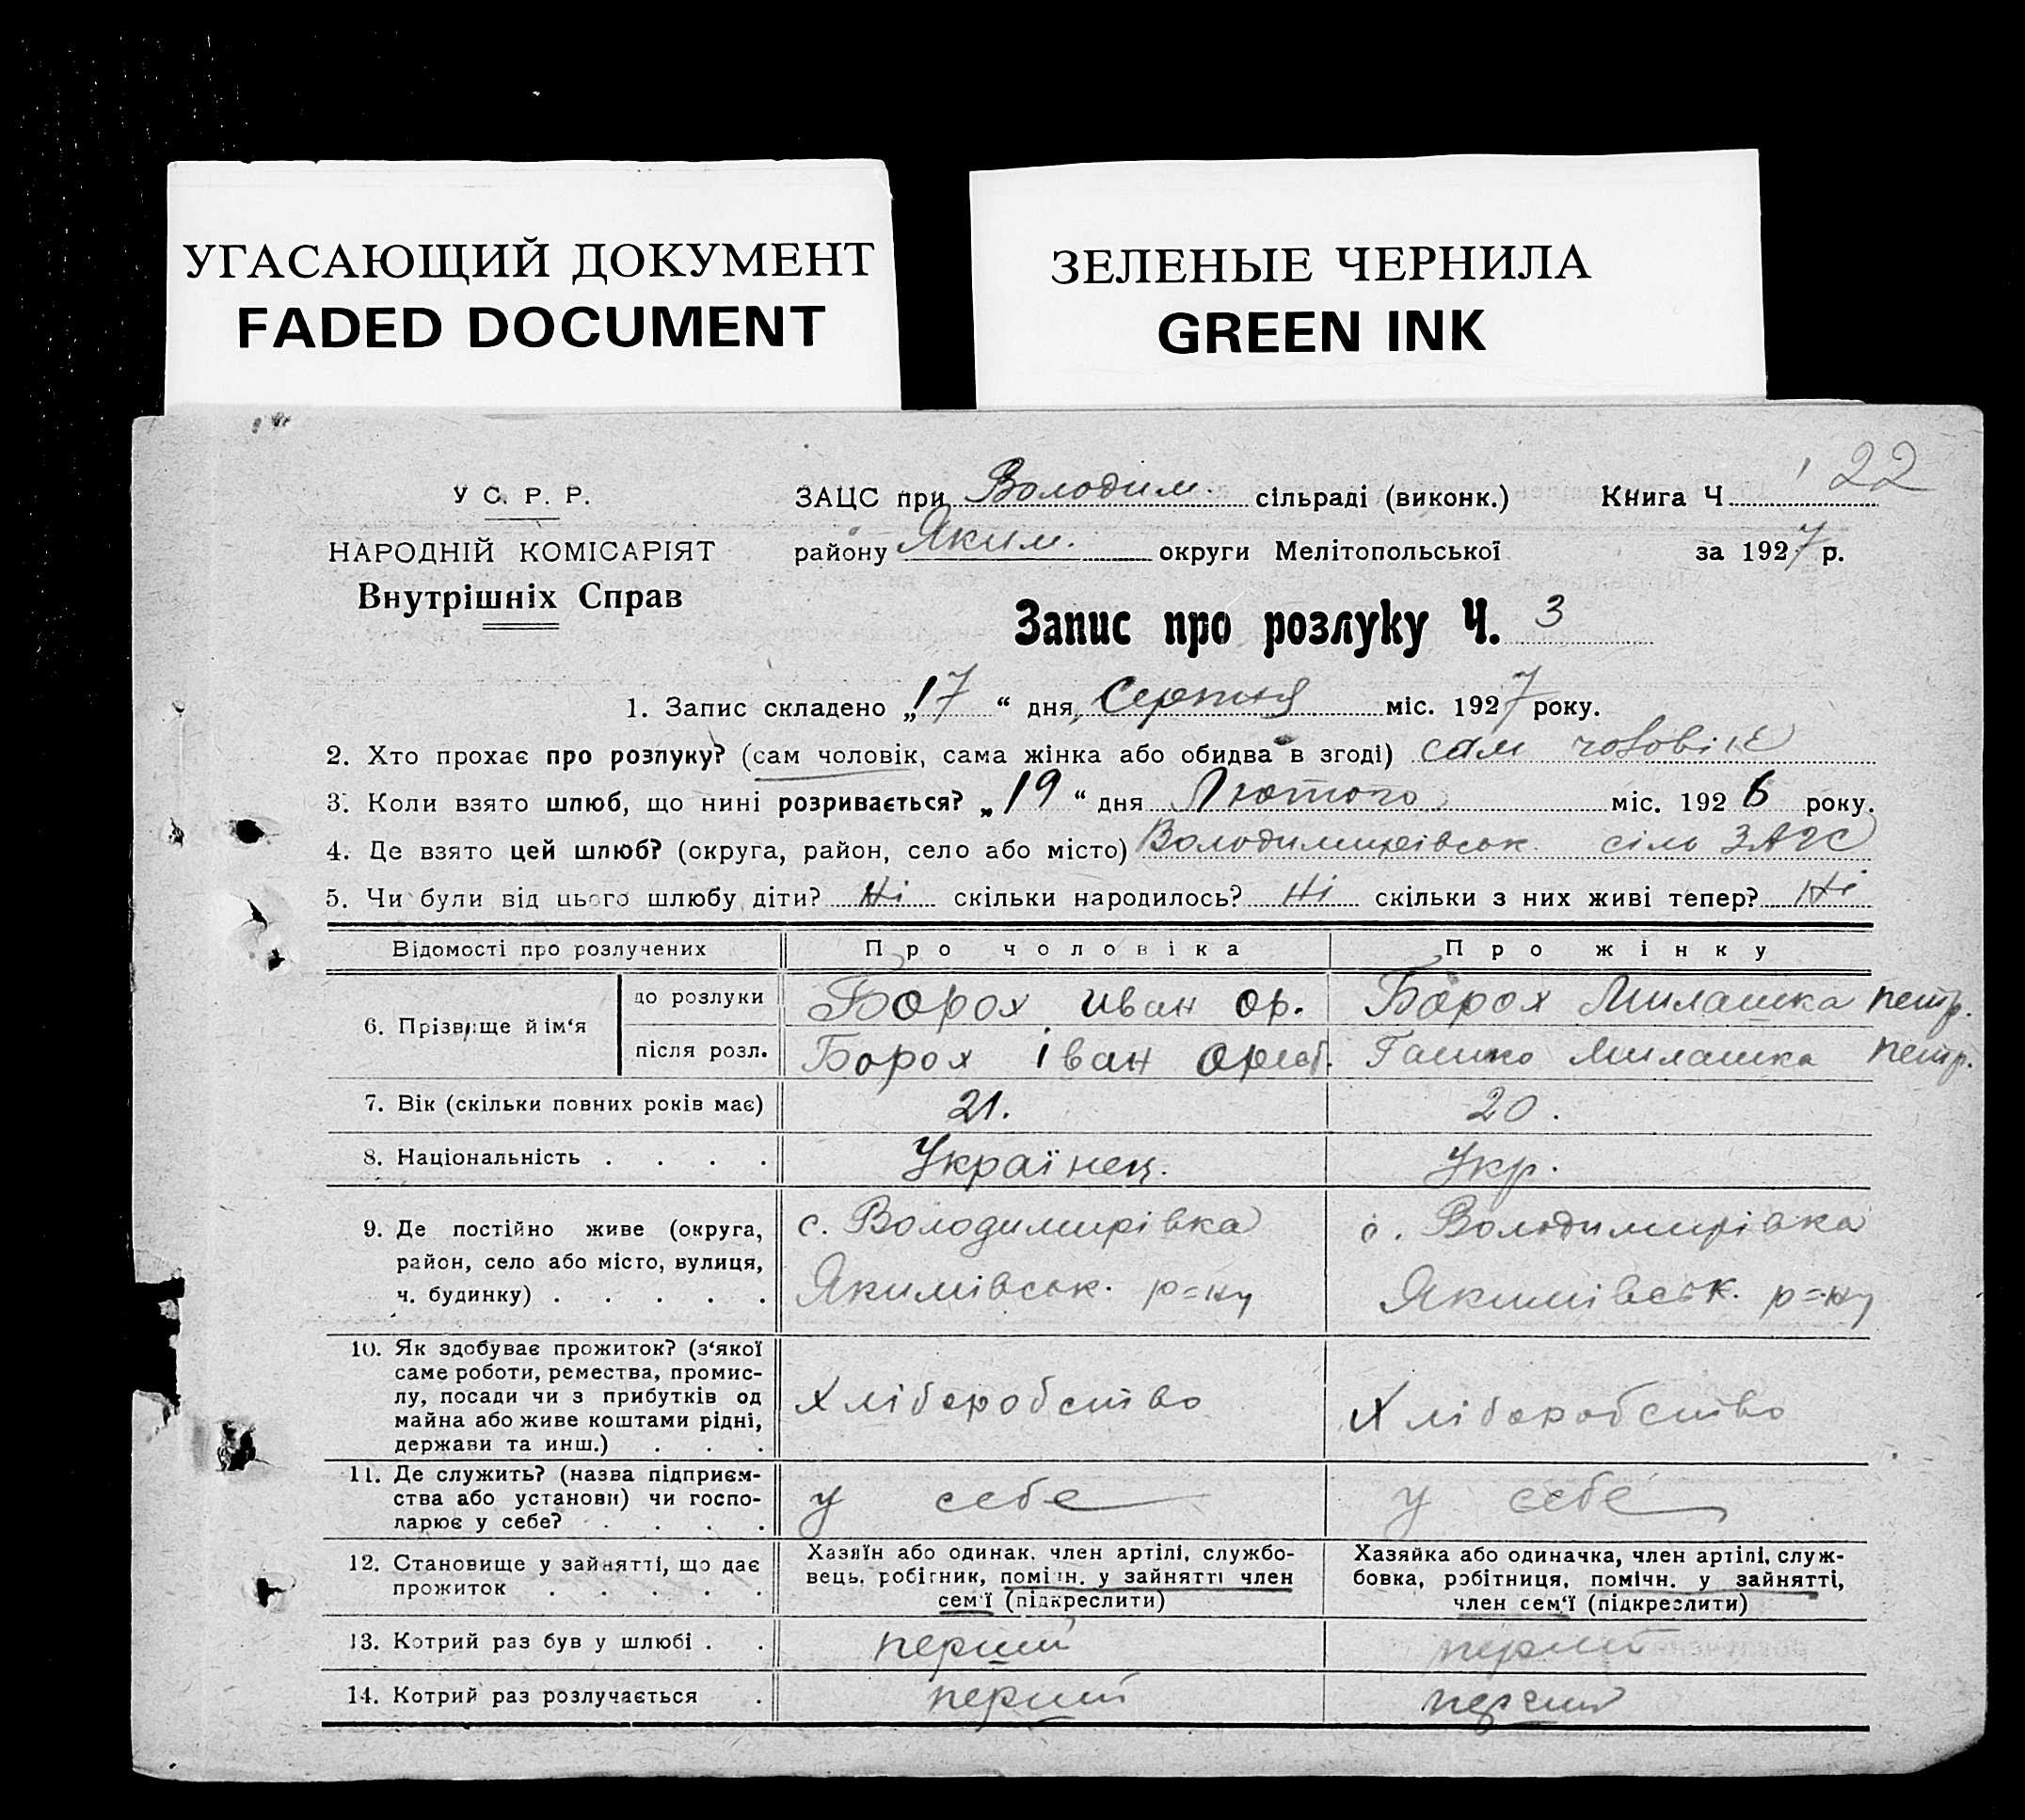 УГАСАЮЩИЙ ДОКУМЕНТ
FADED DOCUMENT
ЗЕЛЕНЫЕ ЧЕРНИЛА
GREEN INK
22
У С. Р. Р.
НАРОДНІЙ КОМІСАРІЯТ
Внутрішніх Справ
ЗАЦС при Володим. сільраді (виконк.) Книга Ч
району Яким. округи Мелітопольської за 1927 р.
Запис про розлуку Ч. 3
1. Запис складено „17“ дня Серпня міс. 1927 року.
2. Хто прохає про розлуку? (сам чоловік, сама жінка або обидва в згоді) сам чоловік
3. Коли взято шлюб, що нині розривається? „19“ дня Лютого міс. 1926 року.
4. Де взято цей шлюб? (округа, район, село або місто) Володимирівськ. сіль ЗАГС
5. Чи були від цього шлюбу діти? Ні скільки народилось? Ні скільки з них живі тепер? Ні
Відомості про розлучених Про чоловіка Про жінку
6. Прізвище й ім‘я
до розлуки Борох иван ор. Борох Милашка петр.
після розл. Борох іван Милашка петр.
7. Вік (скільки повних років має) 21. 20.
8. Національність . . . . Українец. Укр.
9. Де постійно живе (округа,
район, село або місто, вулиця,
ч. будинку) . . . . .
с. Володимирівка
Якимівськ. р=ну
с. Володимирівка
Якимівськ. р=ну
10. Як здобуває прожиток? (з‘якої
саме роботи, ремества, промис-
лу, посади чи з прибутків од
майна або живе коштами рідні,
держави та инш.) . . .
Хліборобство
Хліборобство
11. Де служить? (назва підприєм-
ства або установи) чи госпо-
дарює у себе? . . . .
у себе
у себе
12. Становище у зайнятті, що дає
прожиток . . . . .
Хазяїн або одинак, член артілі, службо-
вець, робітник, помічн. у зайнятті член
сем‘ї (підкреслити)
Хазяйка або одиначка, член артілі, служ-
бовка, робітниця, помічн. у зайнятті,
член сем‘ї (підкреслити)
13. Котрий раз був у шлюбі . . перший перший
14. Котрий раз розлучається . перший перший